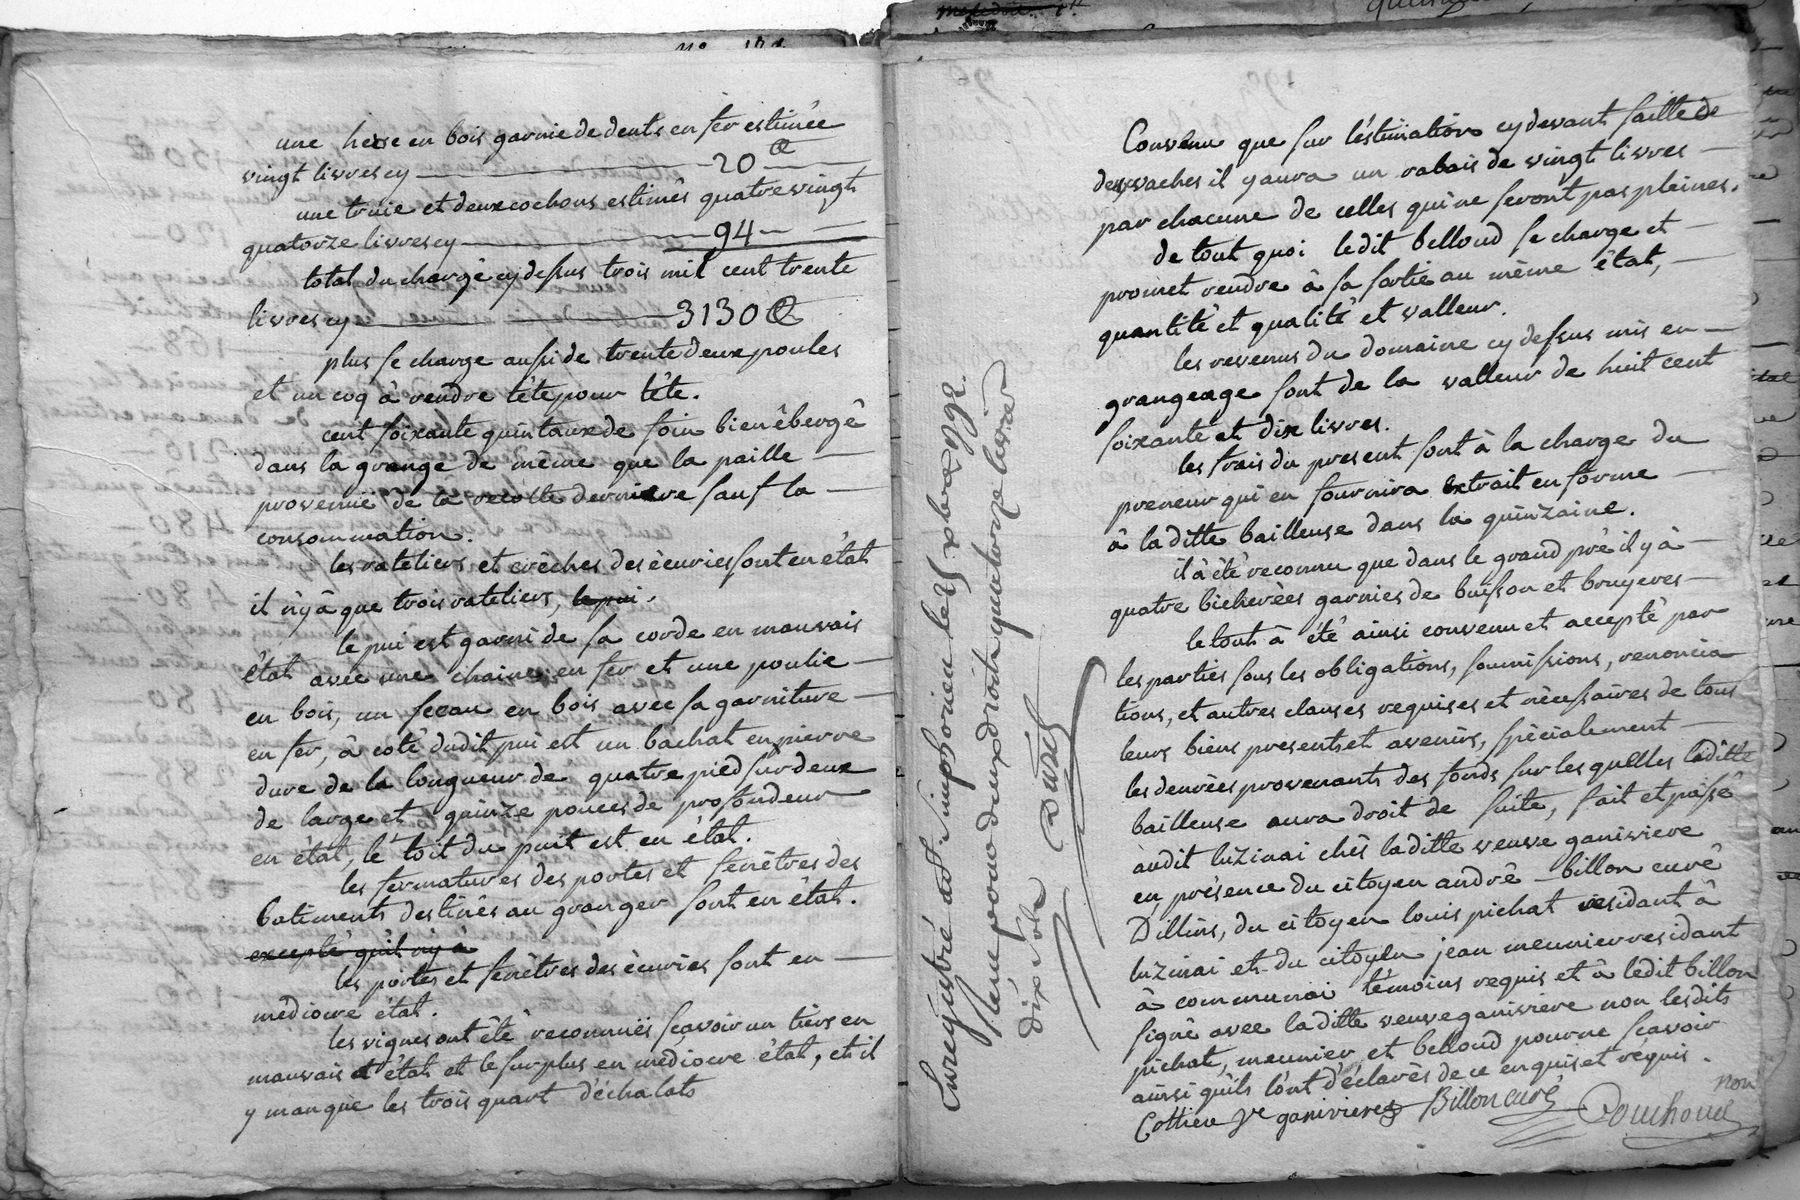 une herse en bois garnie de dents en fer estimée
vingt livres cy 20 ₶
une truie et deux cochons estimés quatre vingt
quatorze livres cy 94
total du chargé cy dessus trois mil cent trente
livres cy 3130 ₶
plus se charge aussi de trente deux poules
et un coq à rendre tête pour tête.
cent soixante quintaux de foin bien ébergé
dans la grange de même que la paille
provenüe de la recolte derniere sauf la
consommation.
les rateliers et crêches des écuries sont en état
il n'y â que trois rateliers, le pui.
le pui est garni de sa corde en mauvais
êtat avec une chaine en fer et une poulie
en bois, un seeau en bois avec sa garniture
en fer, à coté dudit pui est un bachat en pierre
dure de la longueur de quatre pied sur deux
de large et quinze pouces de profondeur
en état, le toit du puit est en êtat.
les fermatures des portes et fenêtres des
batiments destinés au granger sont en êtat.
excepté quil n'y à
les portes et fenêtres des écuries sont en
mediocre état.
les vignes ont êtê reconnuës sçavoir un tiers en
mauvais et état et le surplus en mediocre êtat, et il
y manque les trois quart d'échalats
Enregistré à St Simphorien le
Reçu deux
dix sols Durel
Convenu que sur l'estimation cy devant faitte de
des vaches il y aura un rabais de vingt livres
par chacune de celles qui ne seront pas pleines.
de tout quoi ledit belloud se charge et
promet rendre à sa sortie au même état,
quantité et qualité et valleur.
les revenus du domaine cy dessus mis en
grangeage sont de la valleur de huit cent
soixante et dix livres.
les frais du present sont à la charge du
preneur qui en fournira extrait en forme
â la ditte bailleuse dans la quinzaine.
il â êtê reconnu que dans le grand pré il y à
quatre bicherées garnies de buisson et bruyeres
le tout â été ainsi convenu et accepté par
les parties sous les obligations, soumissions, renoncia
tions, et autres clauses requises et nécessaires de tous
leurs biens presents et avenirs, spécialement
les denrées provenants des fonds sur les quelles laditte
bailleuse aura droit de suite, fait et passé
audit luzinai chês laditte veuve ganiviere
en présence du citoyen andré billon curê
Dillins, du citoyen louis pichat residant à
luzinai et du citoyen jean meunier residant
à communai témoins requis et â ledit billon
signê avec laditte veuve ganiviere non lesdits
pichat, meunier et belloud pour ne sçavoir
ainsi quils l'ont déclarés de ce enquis et réquis.
Cottieu Ve ganiviere Billon curé Couchoud non